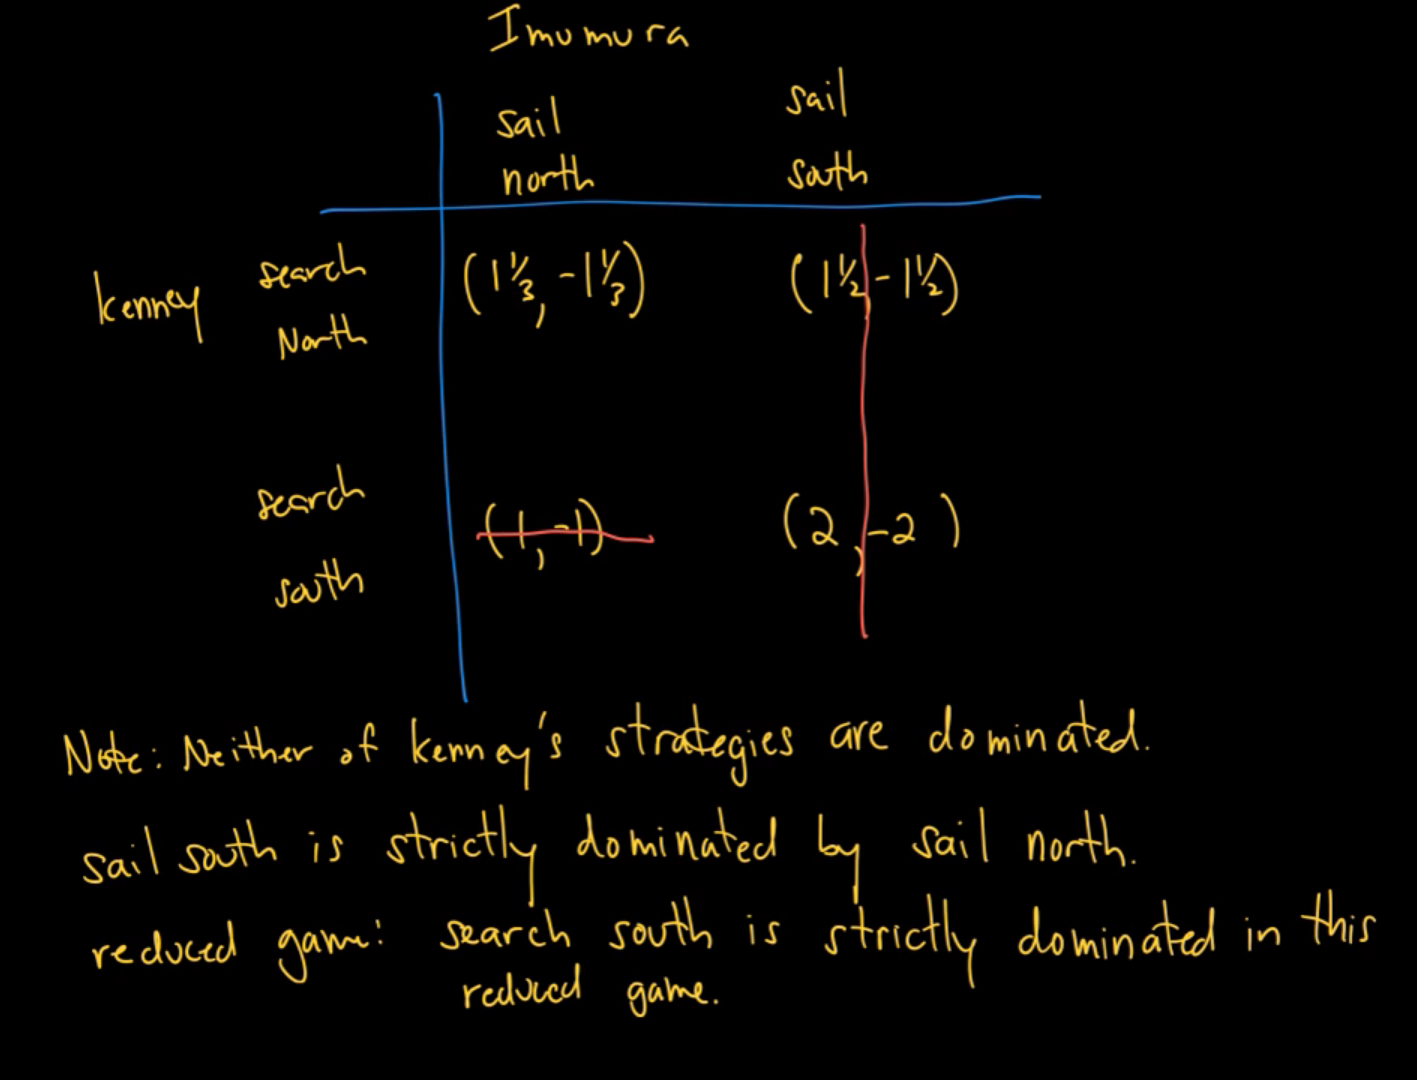 Imumura
sail sail
north south
search (1 1/3, -1 1/3) (1 1/2, -1 1/2)
kenney
North
search (1, -1) (2, -2)
south
Note: Neither of kenney's strategies are dominated.
sail south is strictly dominated by sail north.
reduced game: search south is strictly dominated in this
reduced game.